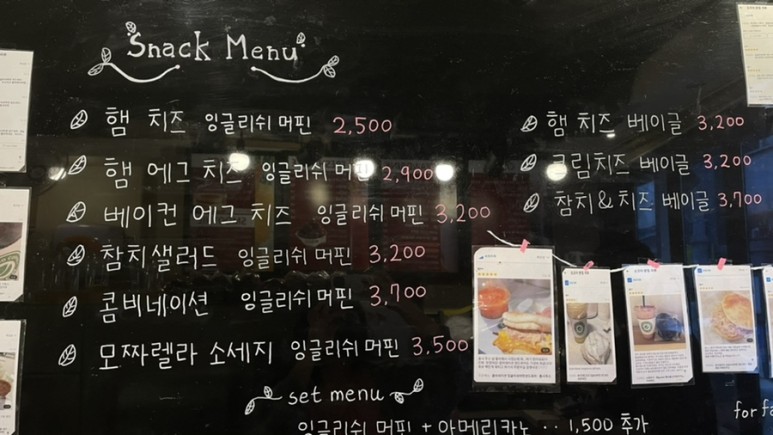 Snack Menu
햄 치즈 잉글리쉬 머핀 2,500
햄 에그 치즈 잉글리쉬 머핀 2,900
베이컨 에그 치즈 잉글리쉬 머핀 3,200
참치샐러드 잉글리쉬 머핀 3,200
콤비네이션 잉글리쉬 머핀 3,700
모짜렐라 소세지 잉글리쉬 머핀 3.500
햄 치즈 베이글 3,200
크림치즈 베이글 3,200
참치&치즈 베이글 3,700
set menu
잉글리쉬 머핀 + 아메리카노 ·· 1,500 추가
for